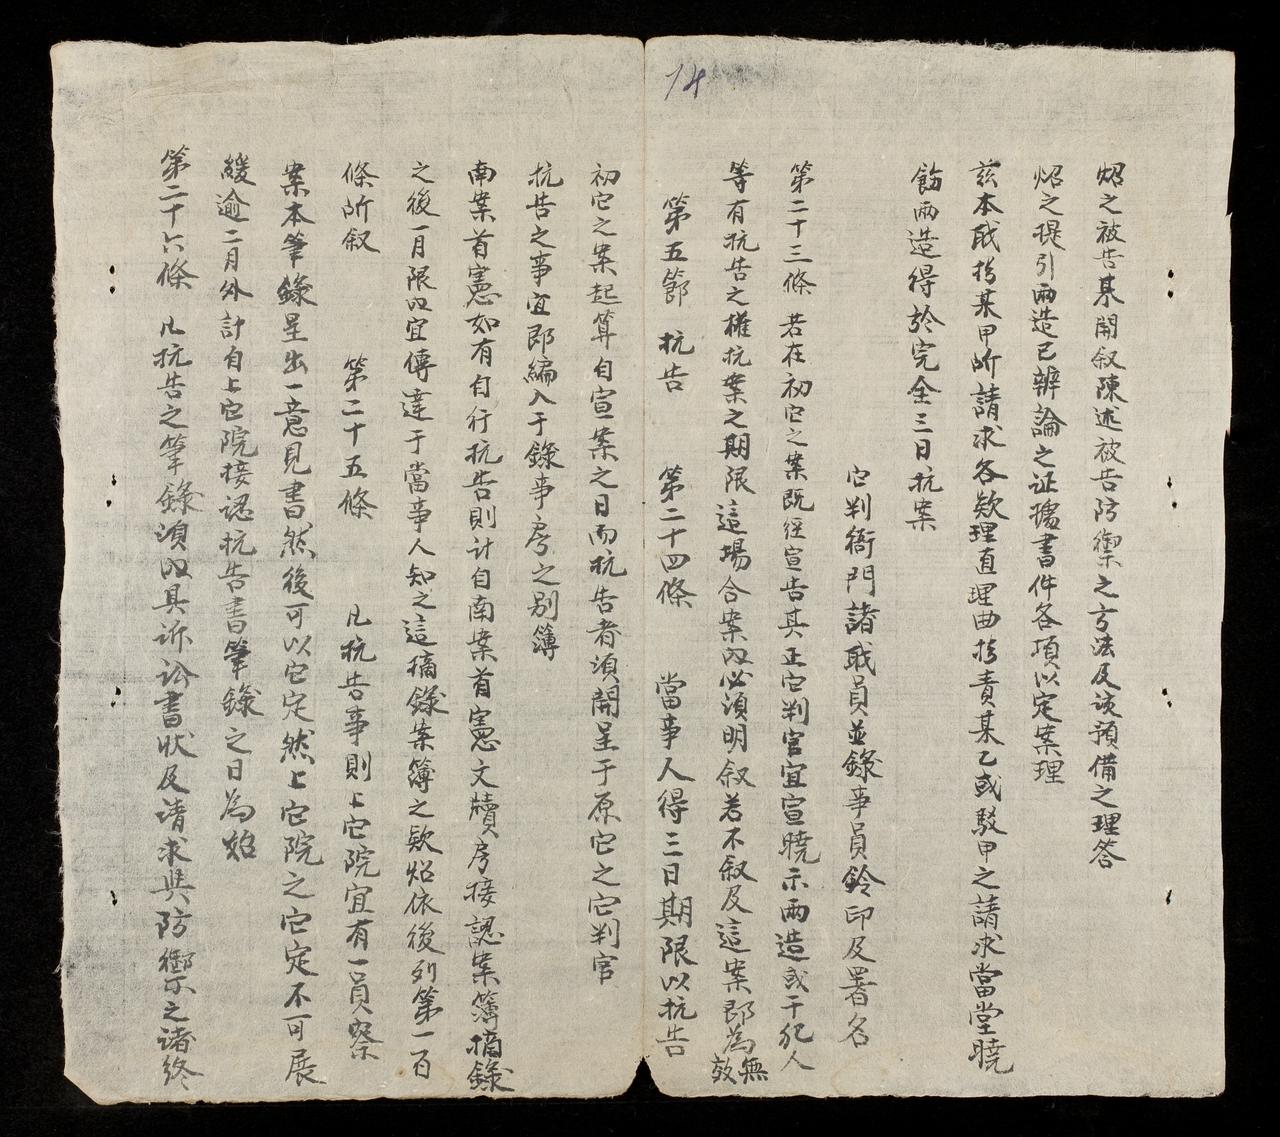 14
炤之被告某開叙陳述被告防禦之方法及該預備之理答
炤之現引両造已辨論之证據書件各項以定案理
玆本戝指某甲所請求各欵理直理曲指責某乙或駁甲之請求當堂曉
飭两造得於完全三日抗案
它判衙門諸戝員並錄事員鈐印及署名
第二十三條 若在初它之案既經宣告其正它判官宜宣曉示两造或干犯人
等有抗告之權抗案之期限這場合案內必須明叙若不叙及這案郎為無效
第五節 抗告 第二十四條 當事人得三日期限以抗告
初它之案起算自宣案之日而抗告者須開呈于原它之它判官
抗告之事宜郎編入于錄事房之别簿
南案首憲如有自行抗告則计自南案首憲文牘房接認案簿摘錄
之後一月限內宜傳達于當事人知之這摘錄案簿之欵炤依後列第一百
條所叙 第二十五條 凡抗告事則上它院宜有一員察
案本筆錄呈出一意見書然後可以它定然上它院之它定不可展
緩逾二月外計自上它院接認抗告書筆錄之日為始
第二十六條 凡抗告之筆錄須內具訴訟書狀及请求與防禦之诸終